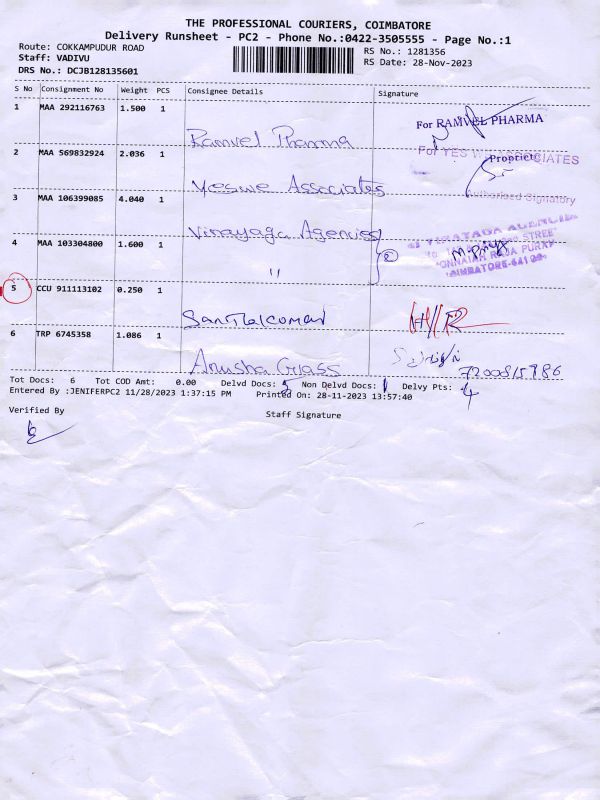 THE PROFESSIONAL COURIERS, COIMBATORE
Delivery Runsheet - PC2 - Phone No.:0422-3505555 - Page No.:1
Route: COKKAMPUDUR ROAD
RS No.: 1281356
Staff: VADIVU
RS Date: 28-Nov-2023
DRS No.: DCJB128135601
S No Consignment No Weight PCS Consignee Details Signature
1 MAA 292116763 1.500 1
For RAMVEL PHARMA
Ramvel Pharma
For YES ASSOCIATES
2 MAA 569832924 2.036 1
Yeswe Associates
Authorised Signatory
3 MAA 106399085 4.040 1
Vinayaga Agencies
4 MAA 103304800 1.600 1
M. Priya
2
COIMBATORE
"
5 CCU 911113102 0.250 1
6 TRP 6745358 1.086 1
Anusha Glass
7200815786
Tot Docs: 6 Tot COD Amt: 0.00 Delvd Docs: 5 Non Delvd Docs: 1 Delvy Pts: 4
Entered By :JENIFERPC2 11/28/2023 1:37:15 PM Printed On: 28-11-2023 13:57:40
Verified By
Staff Signature